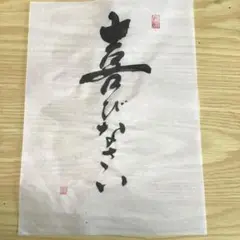 喜びなさい